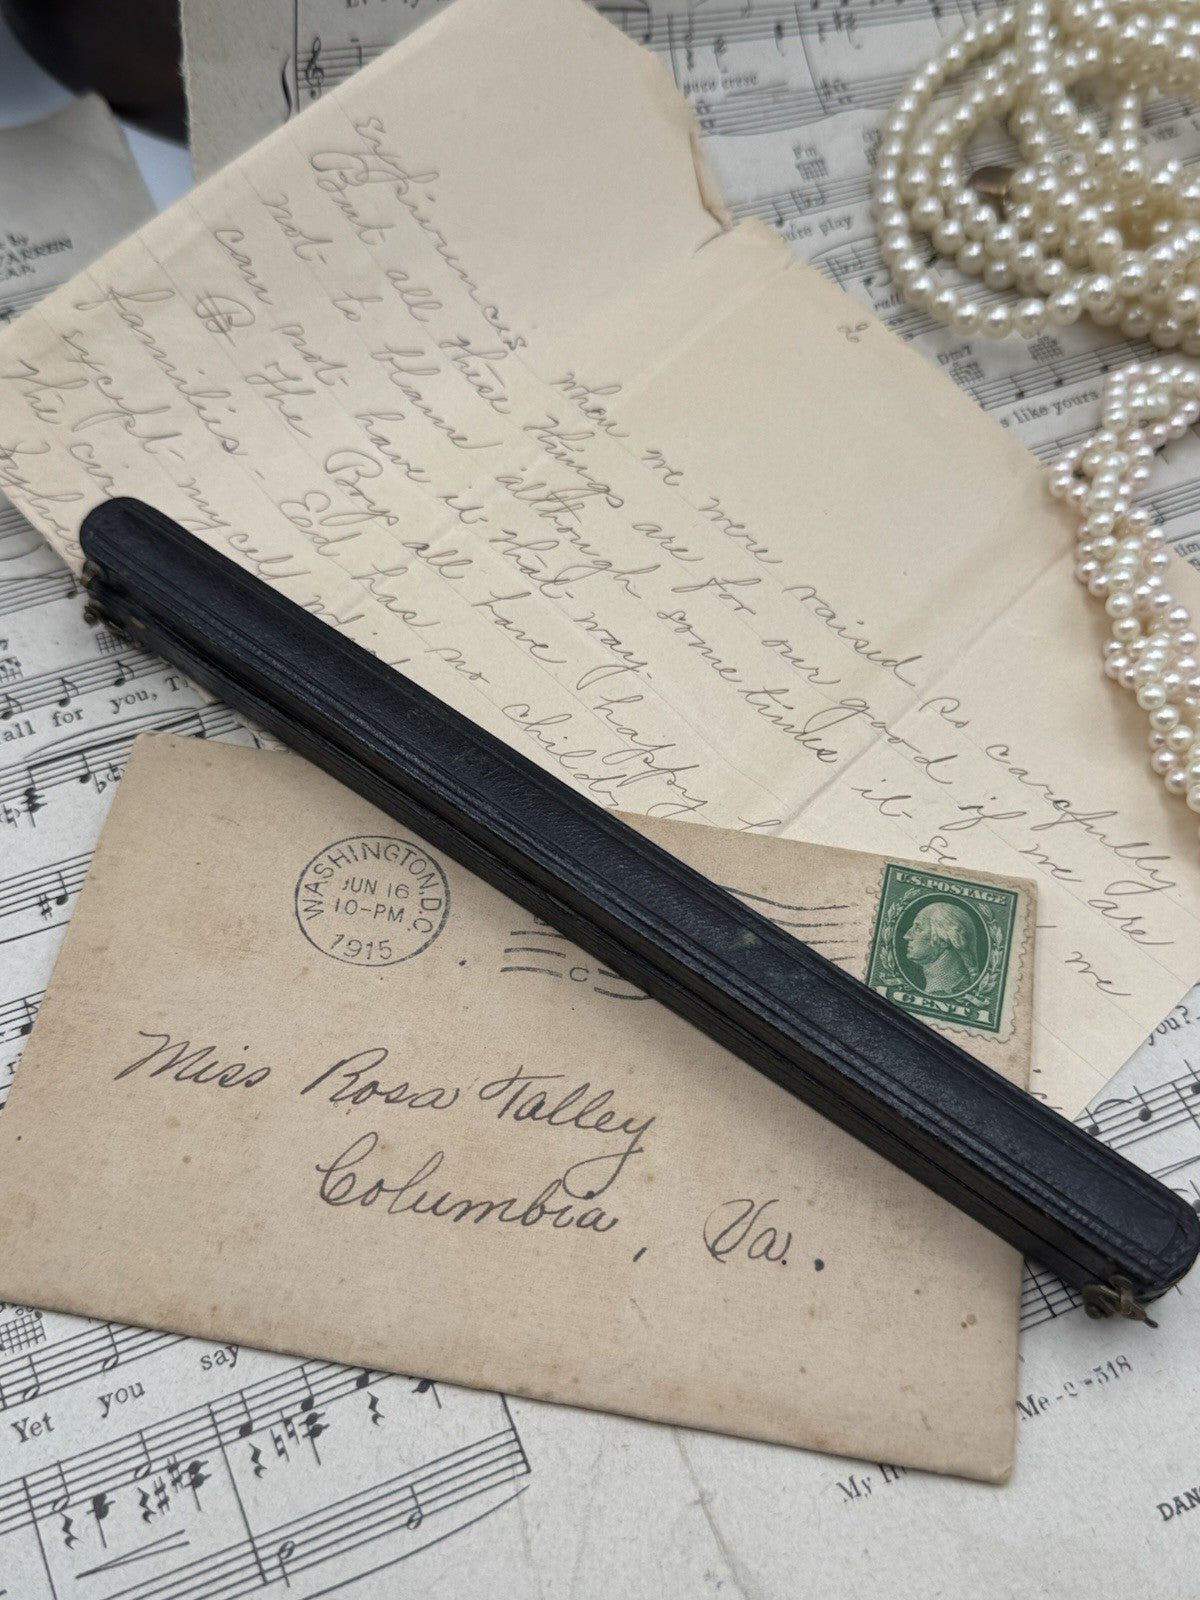 poco cresc
Fm
yours play
Dm7
s like yours
2
Experiences when we were raised so carefully
But all these things are for our good if we are
not to blame although some times it se
can not have it that way.
B The Boys all have happy
families - Ed has no child
except myself
The
all for you,
WASHINGTON, D.C.
JUN 16
10-PM
1915
C
U.S. POSTAGE
1 CENT 1
Miss Rosa Talley
Columbia, Va.
you?
Yet you say
Me-2-518
My
DANC